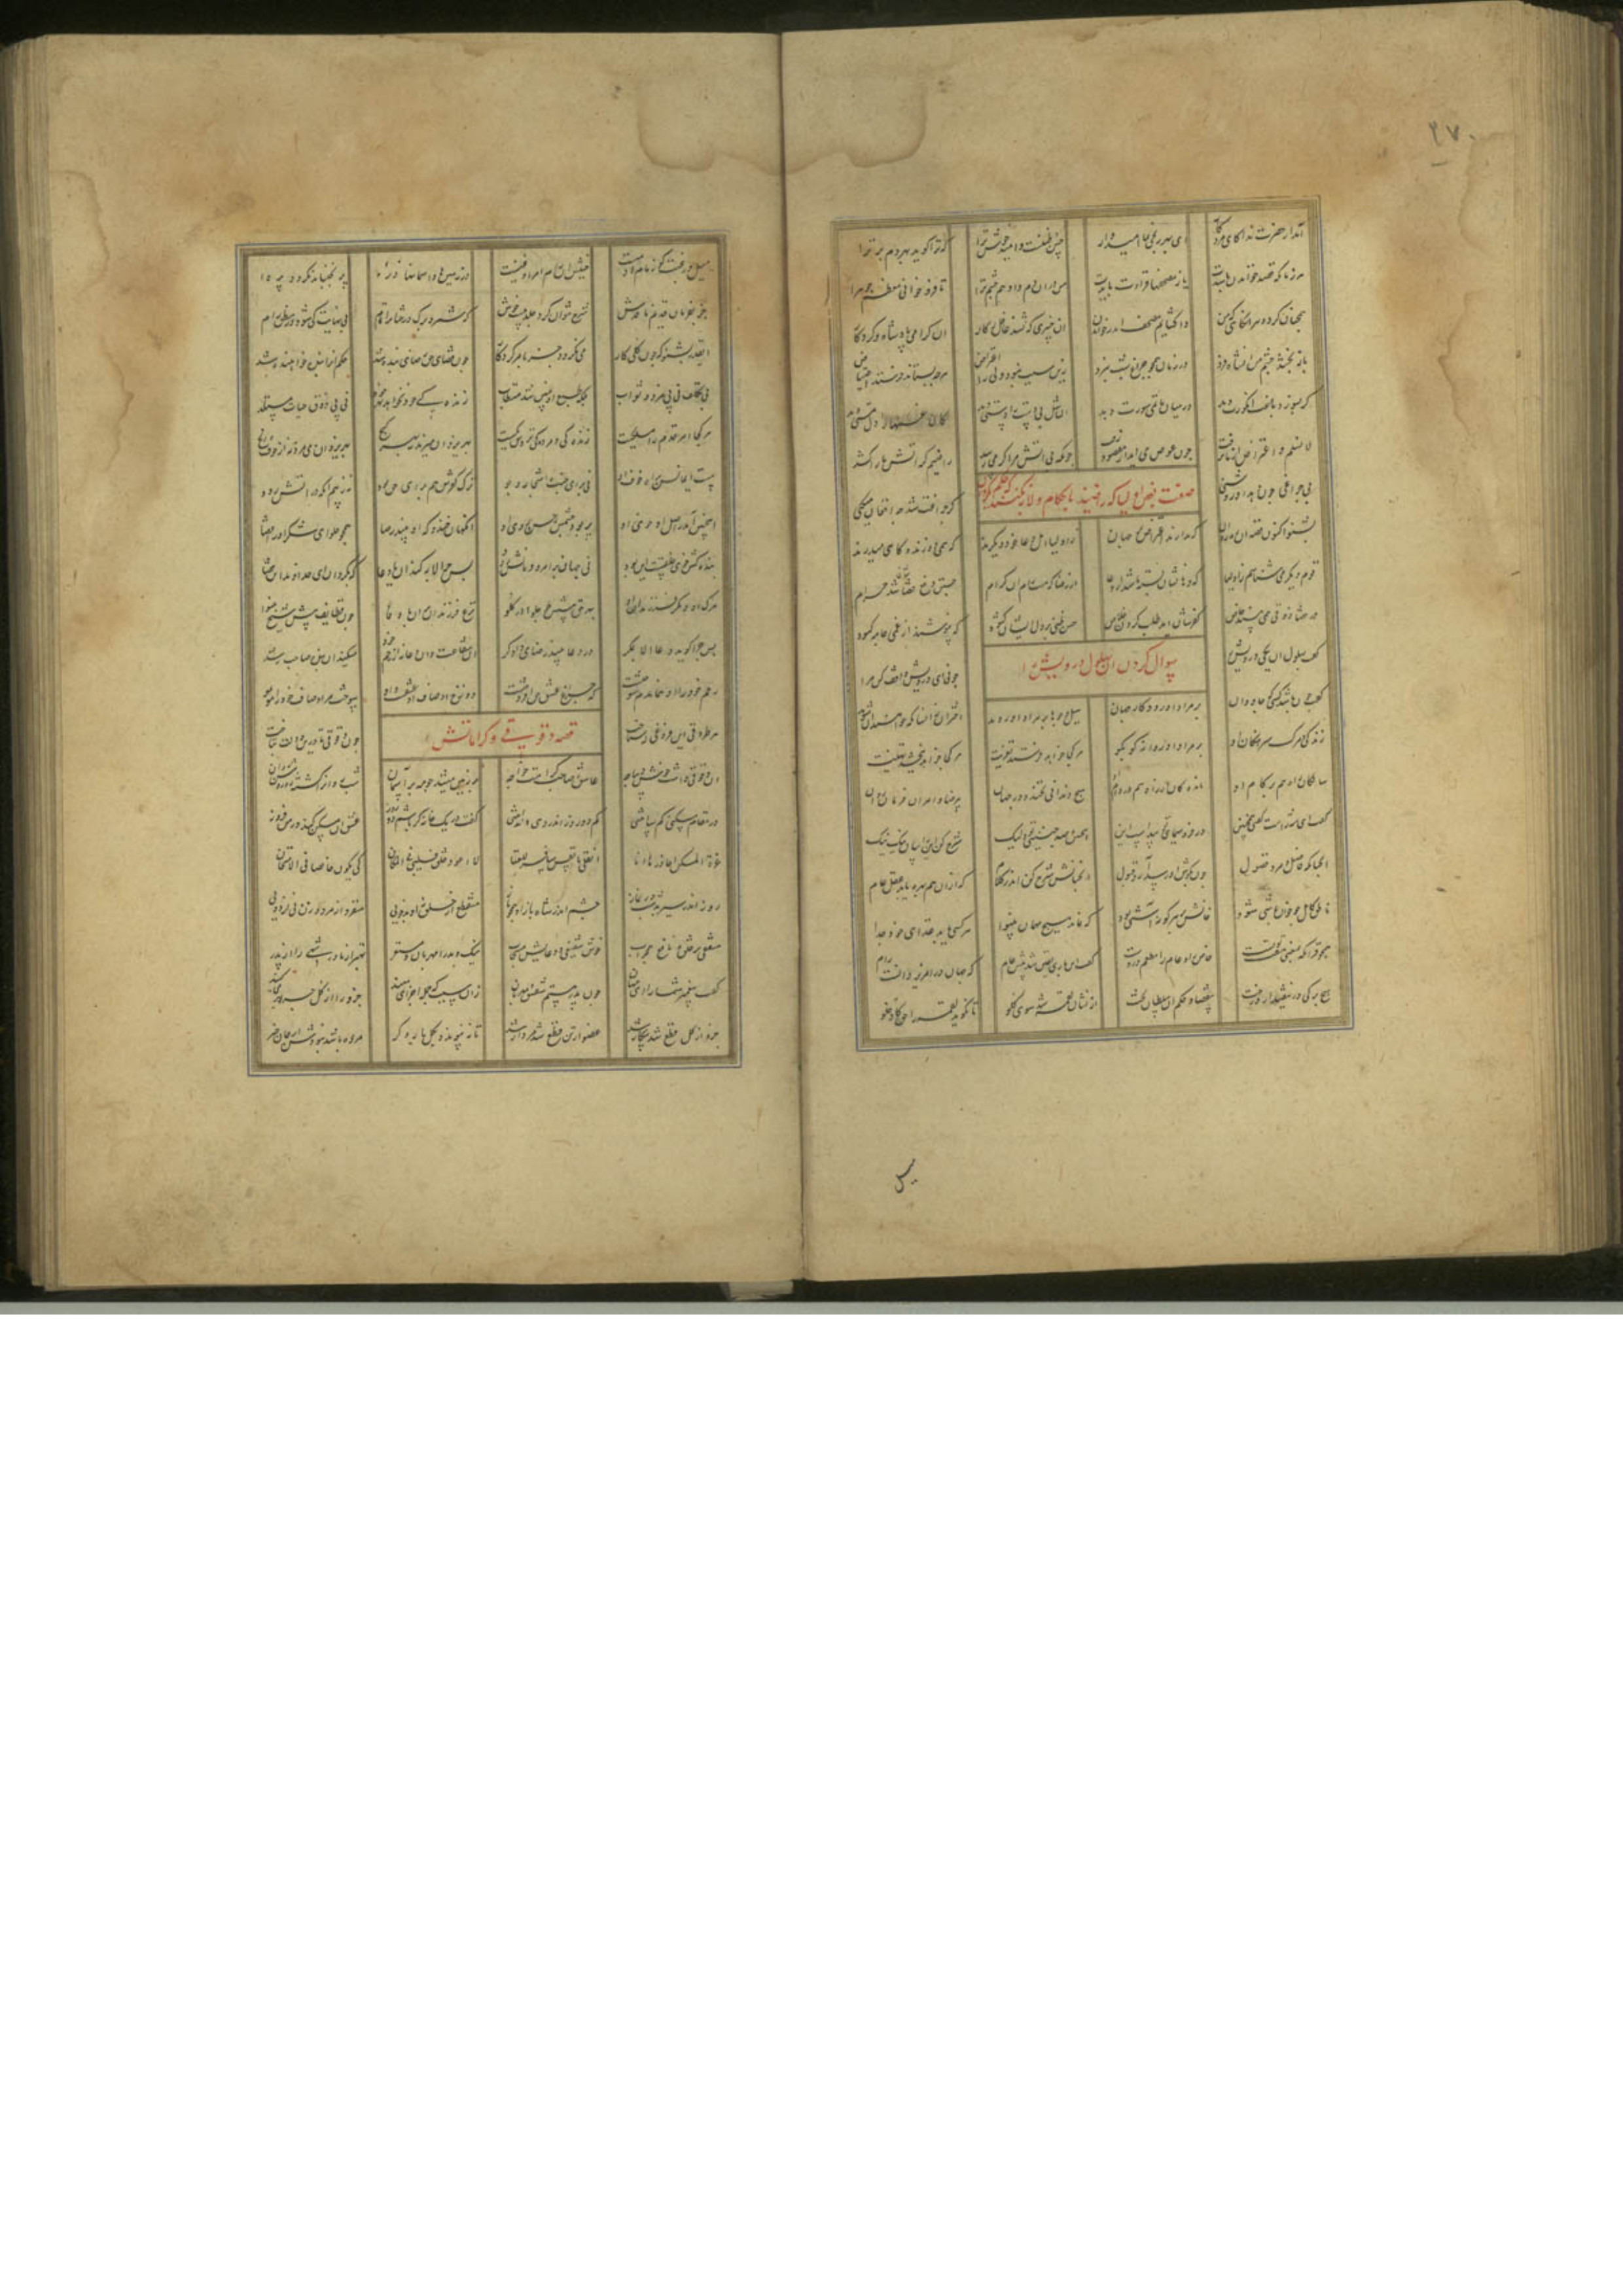 ۲۷۰
آمد از حضرت ندا کای مرد کار ای بهر رنجی بما امیدوار حسن ظنست و امید خوش ترا که ترا گوید بهر دم برتر آ
هر زمان که قصد خواندن باشدت یا ز مصحفها قرائت بایدت من در آن دم وادهم چشم ترا تا فرو خوانی معظم جوهرا
همچنان کرد و هر آنگاهی که من واگشایم مصحف اندر خواندن آن خبیری که نشد غافل ز کار آن گرامی پادشاه و کردگار
باز بخشد بینشم آن شاه فرد در زمان همچون چراغ شب نورد زین سبب نبود ولی را اعتراض هرچه بستاند فرستد اعتیاض
گر بسوزد باغت انگورت دهد در میان ماتمی سورت دهد آن شل بی دست را دستی دهد کان غمها را دل مستی دهد
لا نسلم و اعتراض از ما برفت چون عوض می آید از مفقود زفت چونکه بی آتش مرا گرمی رسد راضیم گر آتش ما را کشد
بی چراغی چون دهد او روشنی گر چراغت شد چه افغان میکنی
صفت بعض اولیا که راضیند باحکام و لابه نکنند که این حکم را بگردان
بشنو اکنون قصه آن رهروان که ندارند اعتراضی در جهان ز اولیا اهل دعا خود دیگرند که همی دوزند و گاهی میدرند
قوم دیگر می شناسم ز اولیا که دهانشان بسته باشد از دعا از رضا که هست رام آن کرام جستن دفع قضاشان شد حرام
در قضا ذوقی همی بینند خاص کفرشان آید طلب کردن خلاص حسن ظنی بر دل ایشان گشود که نپوشند از غمی جامه کبود
گفت بهلول آن یکی درویش را چونی ای درویش واقف کن مرا
سوال کردن آن بهلول درویش را
گفت چون باشد کسی که جاودان بر مراد او رود کار جهان سیل و جوها بر مراد او روند اختران زانسان که خواهد آن شوند
زندگی و مرگ سرهنگان او بر مراد او روانه کو بکو هر کجا خواهد فرستد تعزیت هر کجا خواهد ببخشد تهنیت
سالکان راه هم بر گام او ماندگان از راه هم در دام او هیچ دندانی نخندد در جهان بی رضا و امر آن فرمان روان
گفت ای شه راست گفتی همچنین در فر و سیمای تو پیداست این این و صد چندینی ولیک شرح کن این را بیان کن نیک نیک
آنچنانکه فاضل و مرد فضول چون بگوش او رسد آرد قبول آنچنانش شرح کن اندر کلام که از آن هم بهره یابد عقل عام
ناطق کامل چو خوان باشی بود خوانش بر هر گونه آشی بود که نماند هیچ مهمان بینوا هر کسی یابد غذای خود جدا
همچو قرآن که بمعنی هفت توست خاص را و عام را مطعم دروست گفت این باری یقین شد پیش عام که جهان در امر یزدانست رام
هیچ برگی در نیفتد از درخت بی قضا و حکم آن سلطان بخت از دهان لقمه نشد سوی گلو تا نگوید لقمه را حق کادخلوا
میل و رغبت کان زمام آدمیست جنبش آن رام امر آن غنیست در زمینها و آسمانها ذره پر نجنباند نگردد پره
جز بفرمان قدیم نافذش شرح نتوان کرد و جلدی نیست خوش که شمرد برگ درختان را تمام بی نهایت کی شود در نطق رام
این قدر بشنو که چون کلی کار می نگردد جز بامر کردگار چون قضای حق رضای بنده شد حکم او را بنده خواهنده شد
بی تکلف نی پی مزد و ثواب بلکه طبع او چنین شد مستطاب زندگی خود نخواهد بهر خود نی پی ذوق حیات مستلذ
هر کجا امر قدم را مسلکیست زندگی و مردگی پیشش یکیست بهر یزدان میزید نی بهر گنج بهر یزدان می مرد نز خوف و رنج
هست ایمانش برای خواست او نی برای جنت و اشجار و جو ترک کفرش هم برای حق بود نی ز بیم آنکه در آتش رود
این چنین آمد ز اصل آن خوی او آنگهان خندد که او بیند رضا همچو حلوای شکر او را قضا
بنده کش خوی و خلقت این بود نی جهان بر امر و فرمانش رود پس چرا لابه کند او یا دعا که بگردان ای خداوند این قضا
مرگ او و مرگ فرزندان او بهر حق پیشش چو حلوا در گلو نزع فرزندان بر آن باوفا چون قطایف پیش شیخ بینوا
پس چرا گوید دعا الا مگر در دعا بیند رضای دادگر آن شفاعت وان دعا نه از رحم خود میکند آن بنده صاحب رشد
رحم خود را او همان دم سوختست که چراغ عشق حق افروختست دوزخ اوصاف او عشقست و او سوخت مر اوصاف خود را مو بمو
هر طروقی این فروقی کی شناخت چون دقوقی تا درین دولت بتاخت
قصه دقوقی و کراماتش
آن دقوقی داشت خوش دیباجه عاشق و صاحب کرامت خواجه بر زمین میشد چو مه بر آسمان شب روان را گشته زو روشن روان
در مقامی مسکنی کم ساختی کم دو روز اندر دهی انداختی گفت در یک خانه گر باشم دو روز عشق آن مسکن کند در من فروز
غرة المسکن احاذرها انا انقلی یا نفس سیری للغنا لا اعود خلق قلبی بالمکان کی یکون خالصا فی الامتحان
روز اندر سیر بد شب در نماز چشم اندر شاه باز او همچو باز منقطع از خلق نی از بدخویی منفرد از مرد و زن نی از دویی
مشفقی بر خلق و نافع همچو آب خوش شفیعی و دعایش مستجاب نیک و بد را مهربان و مستقر بهتر از مادر شهی تر از پدر
گفت پیغمبر شما را ای مهان چون پدر هستم شفیق و مهربان زان سبب که جمله اجزای منید جزو را از کل چرا بر میکنید
جزو از کل قطع شد بیکار شد عضو از تن قطع شد مردار شد تا نپیوندد بکل بار دگر مرده باشد نبودش از جان خبر